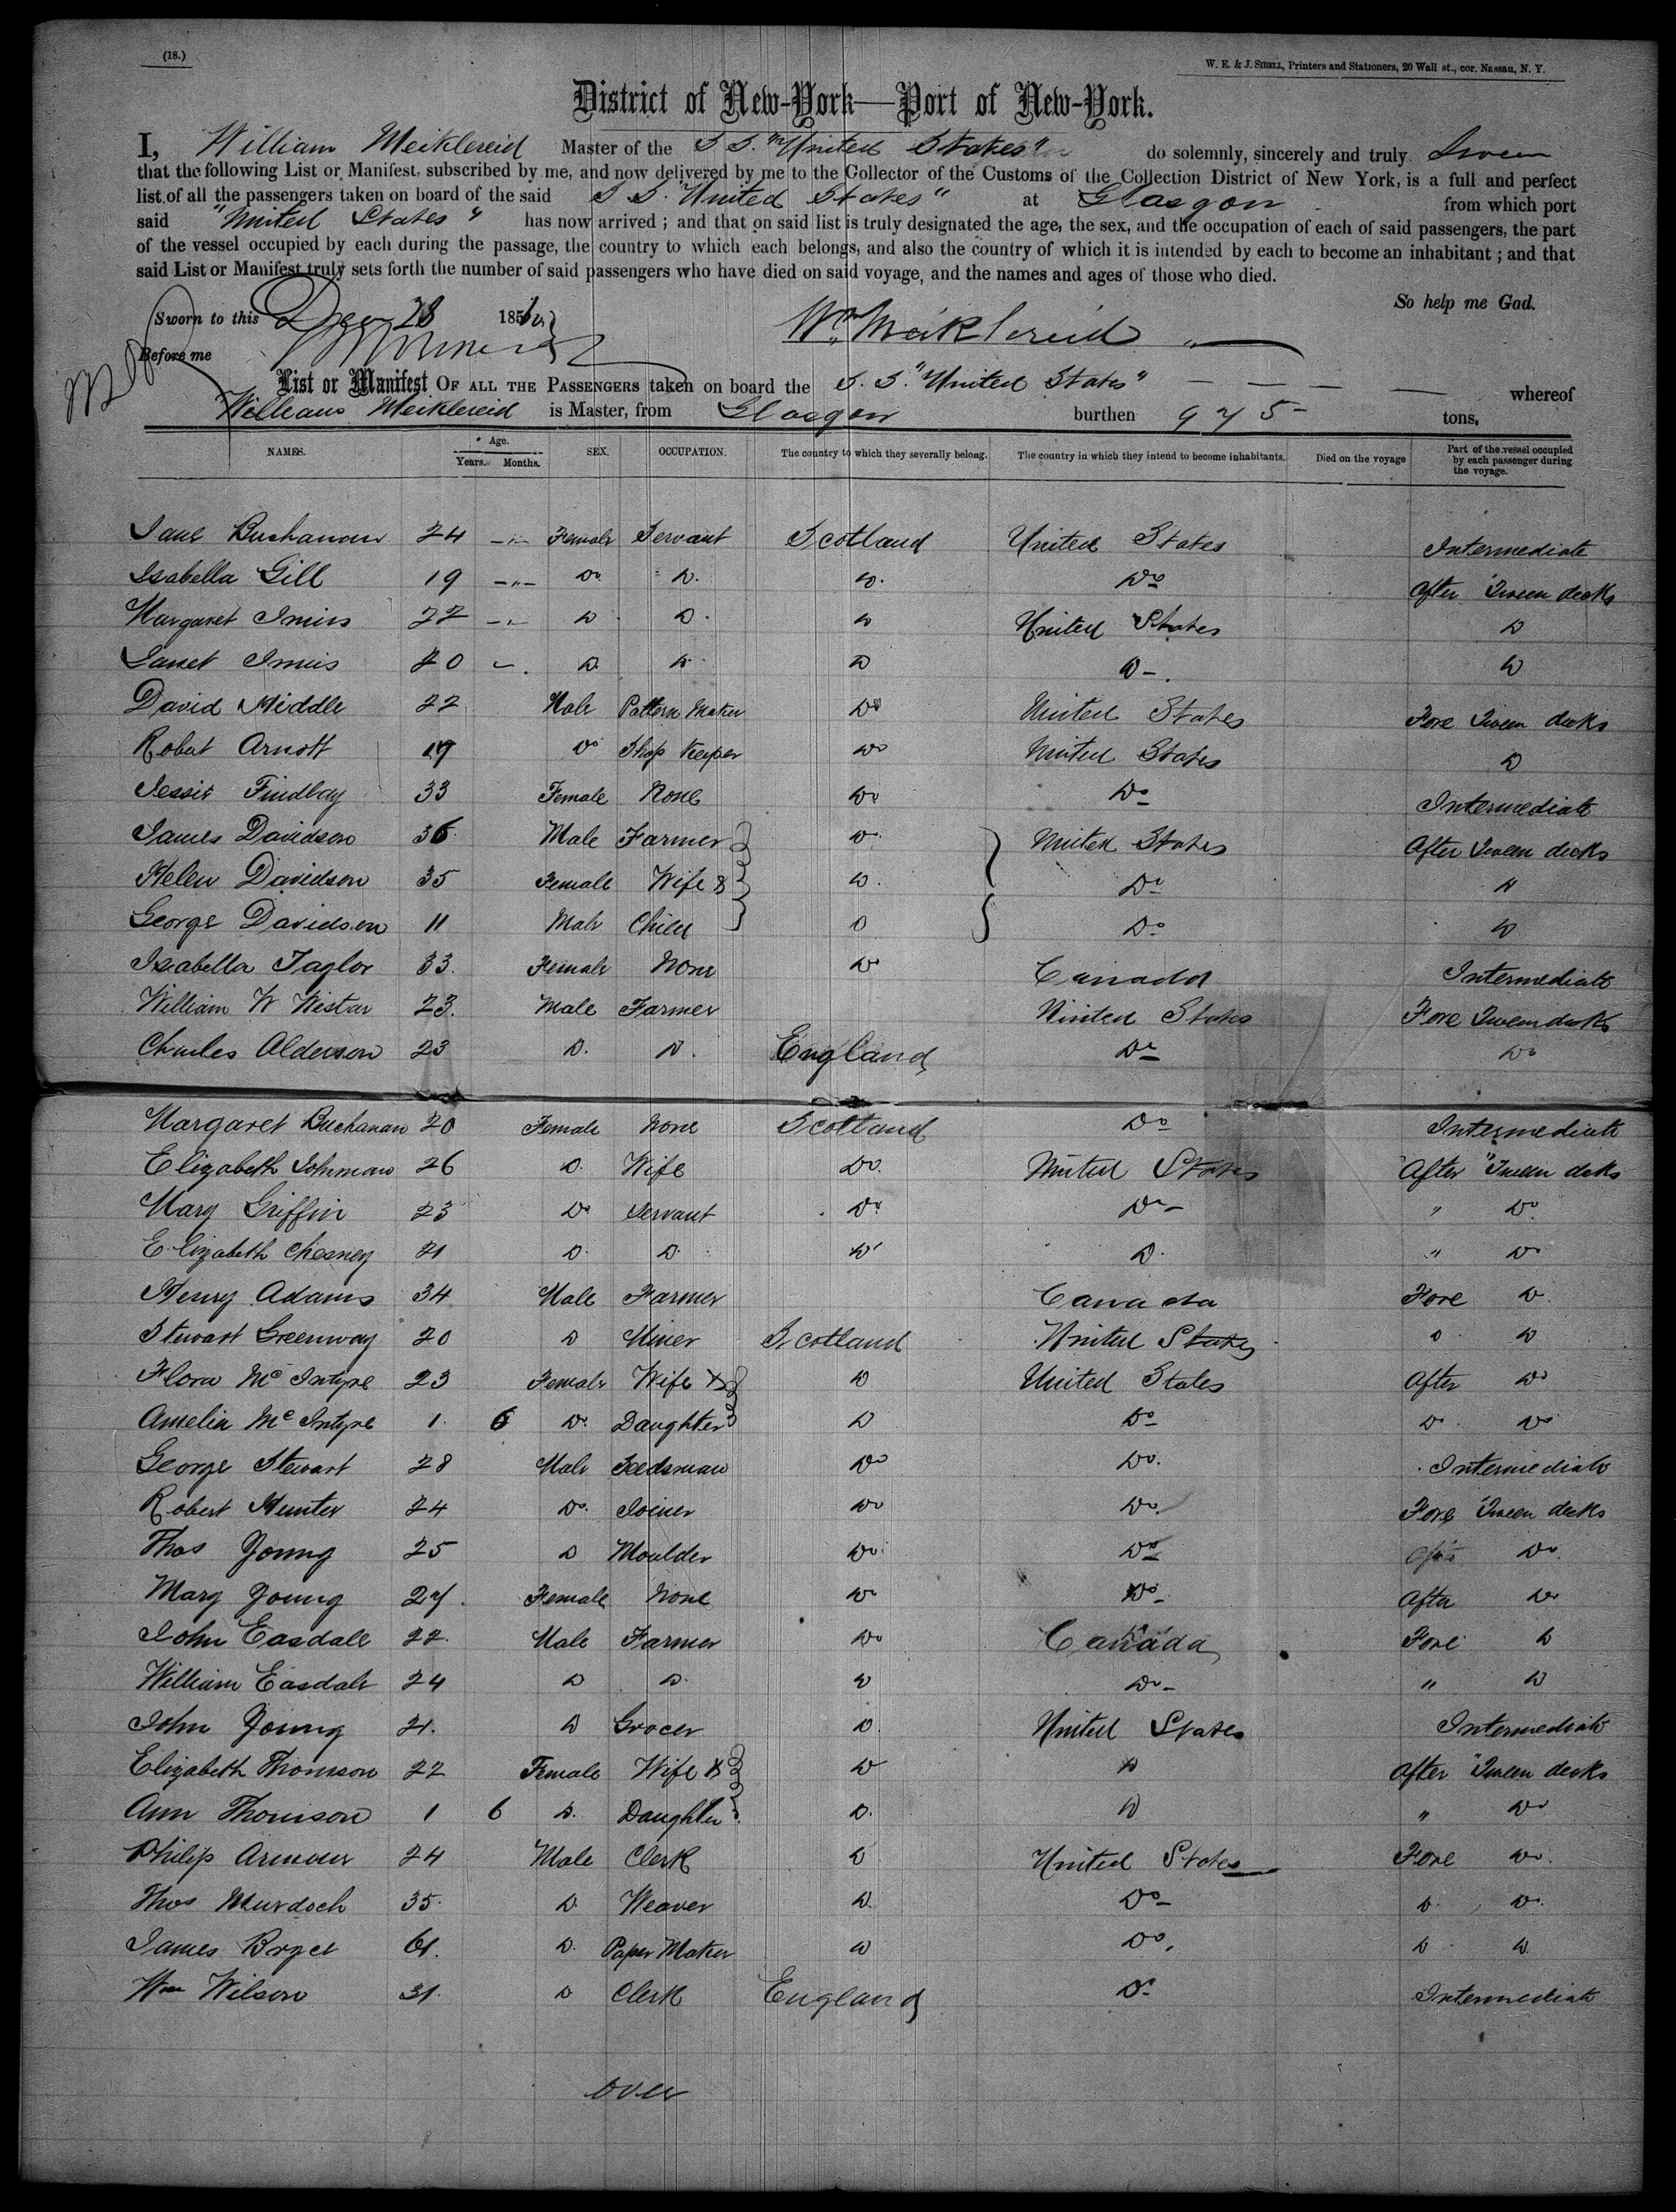 (18.)
W. E. & J. SIBELL, Printers and Stationers, 20 Wall st., cor. Nassau, N. Y.
District of New-York—Port of New-York.
I, William Meiklereid Master of the S S. "United States" do solemnly, sincerely and truly Swear
that the following List or Manifest, subscribed by me, and now delivered by me to the Collector of the Customs of the Collection District of New York, is a full and perfect
list of all the passengers taken on board of the said S S. "United States" at Glasgow from which port
said "United States" has now arrived ; and that on said list is truly designated the age, the sex, and the occupation of each of said passengers, the part
of the vessel occupied by each during the passage, the country to which each belongs, and also the country of which it is intended by each to become an inhabitant ; and that
said List or Manifest truly sets forth the number of said passengers who have died on said voyage, and the names and ages of those who died.
So help me God.
Sworn to this Dec 28 18
Wm Meiklereid
Before me
List or Manifest OF ALL THE PASSENGERS taken on board the S. S. "United States" whereof
William Meiklereid is Master, from Glasgow burthen 975 tons.
NAMES. Age. Years. Months. SEX. OCCUPATION. The country to which they severally belong. The country in which they intend to become inhabitants. Died on the voyage Part of the vessel occupied by each passenger during the voyage.
Jane Buchanan 24 -"- Female Servant Scotland United States Intermediate
Isabella Gill 19 -"- Do. D. D. Do After 'Tween decks
Margaret Innis 22 -"- D D. D United States D
Janet Innis 20 D. D. D D-. D
David Middle 22 Male Pattern Maker Do United States Fore Tween decks
Robert Arnott 19 Do Shop Keeper Do United States D
Jessie Findlay 33 Female None Do Do Intermediate
James Davidson 36 Male Farmer Do United States After Tween decks
Helen Davidson 35 Female Wife & D. Do "
George Davidson 11 Male Child D Do D
Isabella Taylor 33. Female None Do Canada Intermediate
William W Wistar 23. Male Farmer United States Fore Tween decks
Charles Alderson 23 D. D. England Do Do
Margaret Buchanan 20 Female None Scotland Do Intermediate
Elizabeth Johnman 26 D. Wife Do. United States After "Tween decks
Mary Griffin 23 Do Servant Do Do- " Do
Elizabeth Chesney 21 D. D. D D. " Do
Henry Adams 34 Male Farmer Canada Fore D.
Stewart Greenway 20 D Miner Scotland United States D D
Flora McIntyre 23 Female Wife & D United States After Do
Amelia McIntyre 1. 6 Do. Daughter D Do Do. Do
George Stewart 28 Male Seedsman Do Do. Intermediate
Robert Hunter 24 Do. Joiner Do Do. Fore Tween decks
Thos Young 25 D Moulder Do Do Do.
Mary Young 27. Female None Do Do- After Do
John Easdale 22. Male Farmer Do Canada Fore D
William Easdale 24 D D. D Do- " D
John Young 21. D Grocer D. United States Intermediate
Elizabeth Thomson 22 Female Wife & D D After "Tween decks
Ann Thomson 1 6 D. Daughter D. D " Do
Philip Armour 24 Male Clerk D United States Fore Do.
Thos Murdoch 35. D. Weaver D. Do- D. Do.
James Bryce 61. D. Paper Maker D Do. D D.
Wm Wilson 31. D Clerk England Do Intermediate
over